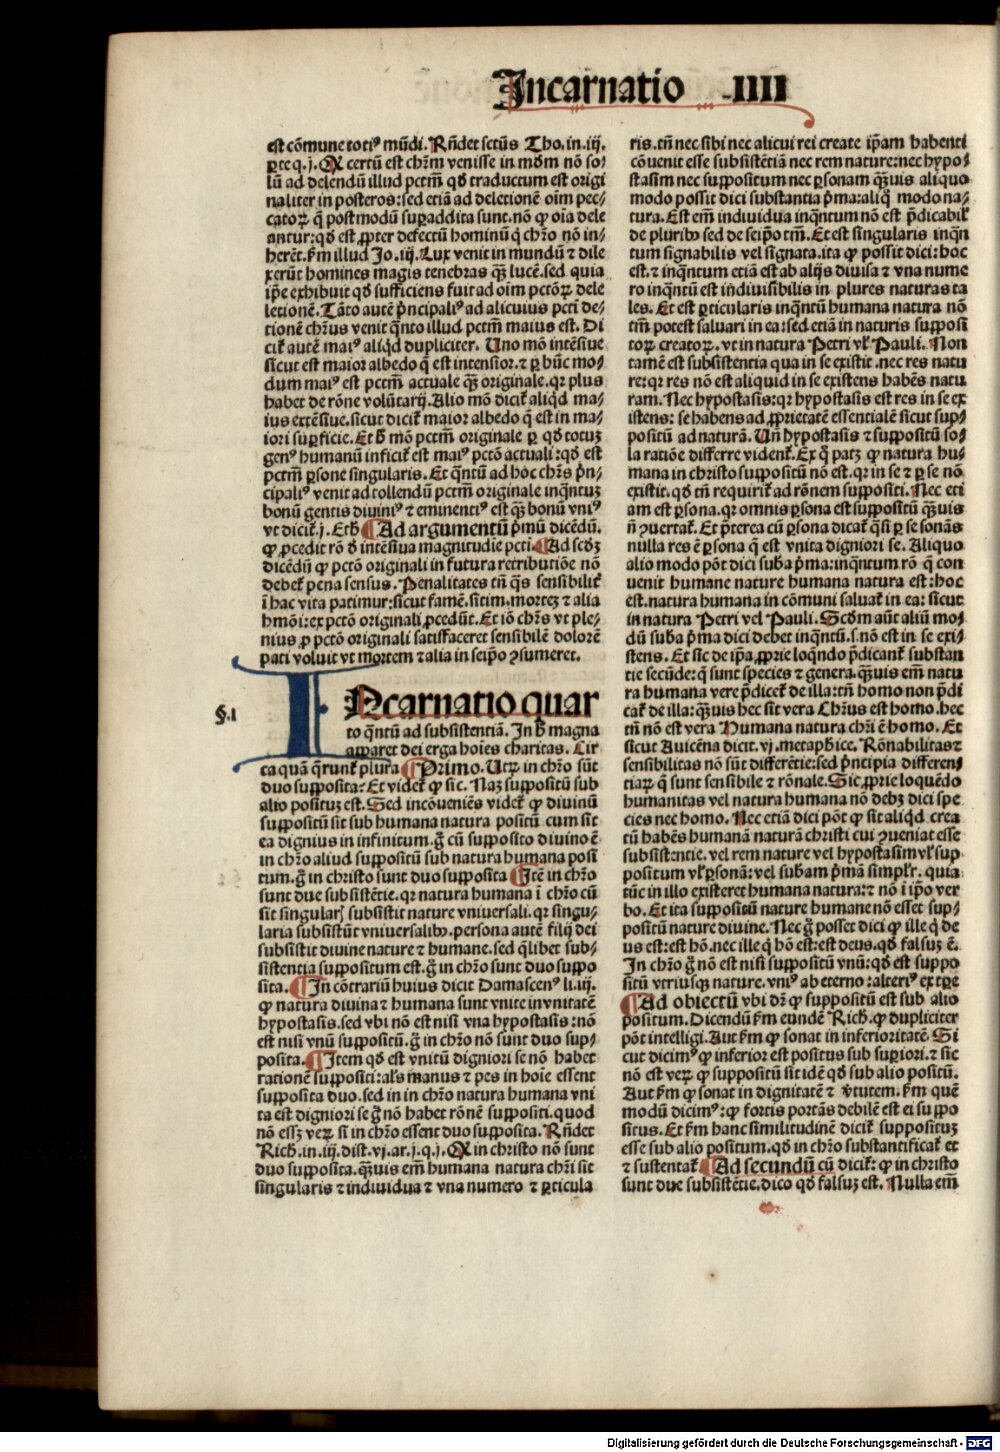 Incarnatio .IIII
est cōmune totiꝰ mūdi. Rn̄det sctūs Tho. in .iij.
ꝑte q.j. Q certū est chr̄m venisse in mūdū nō so/
lū ad delendū illud pctm̄ qd̛ traductum est origi
naliter in posteros: sed etiā ad deletionē oīm pec/
catorꝝ q̄ postmodū suꝑaddita sunt. nō ꝙ oīa dele
antur: qd̛ est ꝓpter defectū hominū q̇ chr̄o nō in/
herēt. ẜm illud Jo. iij. Lux venit in mundū ⁊ dile
xerūt homines magis tenebras qꝫ̄ lucē. sed quia
ip̄e exhibuit qd̛ sufficiens fuit ad oīm pctōꝝ dele
letionē. Tāto autē p̄ncipaliꝰ ad alicuius pcti de/
tionē chr̄us venit q̄nto illud pctm̄ maius est. Di
cit̛ autē maiꝰ aliqd̛ dupliciter. Uno mō intēsiue
sicut est maior albedo q̄ est intensior. ⁊ ꝑ hūc mo/
dum maiꝰ est pctm̄ actuale qꝫ̄ originale. qr plus
habet de rōne volūtarij. Alio mō dicit̛ aliqd̛ ma/
ius extēsiue. sicut dicit̛ maior albedo q̄ est in ma/
iori suꝑficie. Et h̛ mō pctm̄ originale ꝑ qd̛ totuꝫ
genꝰ humanū inficit̛ est maiꝰ pctō actuali: qd̛ est
pctm̄ ꝑsone singularis. Et q̄ntū ad hoc chr̄s p̄n/
cipaliꝰ venit ad tollendū pctm̄ originale inq̄ntuꝫ
bonū gentis diuiniꝰ ⁊ eminentiꝰ est qꝫ̄ bonū vniꝰ
vt dicit̛ .j. Eth̛ ¶ Ad argumentū p̄mū dicēdū.
ꝙ ꝓcedit rō d̛ intēsiua magnitudīe pcti. ¶ Ad scd̛ꝫ
dicēdū ꝙ pctō originali in futura retributiōe nō
debet̛ pena sensus. Penalitates tn̄ q̄s sensibilit̛
ī hac vita patimur: sicut famē. sitim. morteꝫ ⁊ alia
hmōi: ex pctō originali ꝓcedūt. Et iō chr̄s vt ple/
nius ꝓ pctō originali satisfaceret sensibilē dolorē
pati voluit vt mortem ⁊ alia in seip̄o ꝯsumeret.
§.1
INcarnatio quar
to q̄ntū ad subsistentiā. In h̛ magna
apparet dei erga hoīes charitas. Cir
ca quā q̄runt̛ plura ¶ Primo. Utꝝ in chr̄o sūt
duo supposita? Et videt̛ ꝙ sic. Naꝫ suppositū sub
alio posituꝫ est. Sed incōueniēs videt̛ ꝙ diuinū
suppositū sit sub humana natura positū cum sit
ea dignius in infinitum. g̊ cū supposito diuino ē
in chr̄o aliud suppositū sub natura humana posi
tum. g̊ in christo sunt duo supposita ¶ Itē in chr̄o
sunt due subsistētie. qr natura humana ī chr̄o cū
sit singularꝭ subsistit nature vniuersali. qr singu/
laria subsistūt vniuersalibꝰ. persona autē filij dei
subsistit diuine nature ⁊ humane. sed q̄libet sub/
sistentia suppositum est. g̊ in chr̄o sunt duo suppo
sita. ¶ In cōtrariū huius dicit Damascenꝰ li. iij.
ꝙ natura diuina ⁊ humana sunt vnite in vnitatē
hypostasis. sed vbi nō est nisi vna hypostasis: nō
est nisi vnū suppositū. g̊ in chr̄o nō sunt duo sup/
posita. ¶ Item qd̛ est vnitū digniori se nō habet
rationē suppositi: al̛s manus ⁊ pes in hoīe essent
supposita duo. sed in in chr̄o natura humana vni
ta est digniori se g̊ nō habet rōnē suppositi. quod
nō essꝫ verꝝ si in chr̄o essent duo supposita. Rn̄det
Rich. in .iij. dist. vj. ar. j. q. j. Q in christo nō sunt
duo supposita. qꝫ̄uis em̄ humana natura chr̄i sit
singularis ⁊ indiuidua ⁊ vna numero ⁊ ꝑticula
ris. tn̄ nec sibi nec alicui rei create ip̄am habenti
cōuenit esse subsistētiā nec rem nature: nec hypo/
stasim nec suppositum nec ꝑsonam qꝫ̄uis aliquo
modo possit dici substantia p̄ma: aliq̊ modo na/
tura. Est em̄ indiuidua inq̄ntum nō est p̄dicabil̛
de pluribꝰ sed de seip̄o tm̄. Et est singularis inq̄n
tum signabilis vel signata. ita ꝙ possit dici: hoc
est. ⁊ inq̄ntum etiā est ab alijs diuisa ⁊ vna nume
ro inq̄ntū est indiuisibilis in plures naturas ta
les. Et est ꝑticularis inq̄ntū humana natura nō
tm̄ potest saluari in ea: sed etiā in naturis supposi
torꝝ creatorꝝ. vt in natura Petri vl̛ Pauli. Non
tamē est subsistentia qua in se existit. nec res natu
re: qr res nō est aliquid in se existens habēs natu
ram. Nec hypostasis: qr hypostasis est res in se ex
istens: se habens ad ꝓprietatē essentialē sicut sup/
positū ad naturā. Un̄ hypostasis ⁊ suppositū so/
la ratiōe differre vident̛. Ex q̊ patꝫ ꝙ natura hu/
mana in christo suppositū nō est. qr in se ⁊ ꝑ se nō
existit. qd̛ tn̄ requirit̛ ad rōnem suppositi. Nec eti
am est ꝑsona. qr omnis ꝑsona est suppositū qꝫ̄uis
nō ꝯuertat̛. Et p̄terea cū ꝑsona dicat̛ q̄si ꝑ se sonās
nulla res ē ꝑsona q̄ est vnita digniori se. Aliquo
alio modo pōt dici sub̄a p̄ma: inq̄ntum rō q̄ con
uenit humane nature humana natura est: hoc
est. natura humana in cōmuni saluat̛ in ea: sicut
in natura Petri vel Pauli. Scd̄m aūt aliū mo/
dū sub̄a p̄ma dici debet inq̄ntū .s. nō est in se exi/
stens. Et sic de ip̄a ꝓprie loq̄ndo p̄dicant̛ substan
tie secūde: q̄ sunt species ⁊ genera. qꝫ̄uis em̄ natu
ra humana vere p̄dicet̛ de illa: tn̄ homo non p̄di
cat̛ de illa: qꝫ̄uis hec sit vera Chr̄us est homo. hec
tn̄ nō est vera Humana natura chr̄i ē homo. Et
sicut Auicēna dicit. vj. metaph̛ice. Rōnabilitas ⁊
sensibilitas nō sūt differētie: sed p̄ncipia differen/
tiarꝝ q̄ sunt sensibile ⁊ rōnale. Sic ꝓprie loquēdo
humanitas vel natura humana nō debꝫ dici spe
cies nec homo. Nec etiā dici pōt ꝙ sit aliqd̛ crea
tū habēs humanā naturā christi cui ꝯueniat esse
subsistentie. vel rem nature vel hypostasim vl̛ sup
positum vl̛ ꝑsonā: vel sub̄am p̄mā simpl̛r. quia
tūc in illo existeret humana natura: ⁊ nō ī ip̄o ver
bo. Et ita suppositū nature humane nō esset sup/
positū nature diuine. Nec g̊ posset dici ꝙ ille q̇ de
us est: est hō. nec ille q̇ hō est: est deus. qd̛ falsuꝫ ē.
In chr̄o g̊ nō est nisi suppositū vnū: qd̛ est suppo
sitū vtriusqꝫ nature. vniꝰ ab eterno: alteriꝰ ex tꝑe
¶ Ad obiectū vbi dr̄ ꝙ suppositū est sub alio
positum. Dicendū ẜm eundē Rich. ꝙ dupliciter
pōt intelligi. Aut ẜm ꝙ sonat in inferioritatē. Si
cut dicimꝰ ꝙ inferior est positus sub suꝑiori. ⁊ sic
nō est verꝝ ꝙ suppositū sit idē qd̛ sub alio positū.
Aut ẜm ꝙ sonat in dignitatē ⁊ v̛tutem. ẜm quē
modū dicimꝰ: ꝙ fortis portās debilē est ei suppo
situs. Et ẜm hanc similitudinē dicit̛ suppositus
esse sub alio positum. qd̛ in chr̄o substantificat̛ et
⁊ sustentat̛. ¶ Ad secundū cū dicit̛: ꝙ in christo
sunt due subsistētie. dico qd̛ falsuꝫ est. Nulla em̄
Digitalisierung gefördert durch die Deutsche Forschungsgemeinschaft - DFG